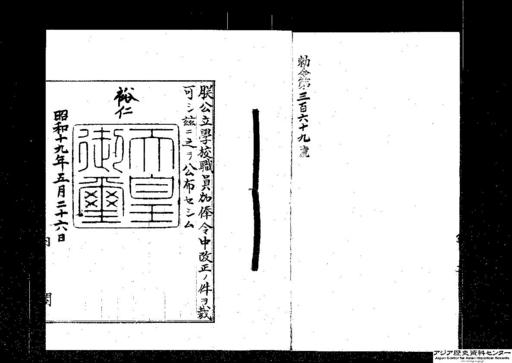 勅令第三百六十九號
朕公立學校職員加俸令中改正ノ件ヲ裁
可シ茲ニ之ヲ公布セシム
裕仁
天皇
御璽
昭和十九年五月二十六日
内閣
アジア歴史資料センター
Japan Center for Asian Historical Records